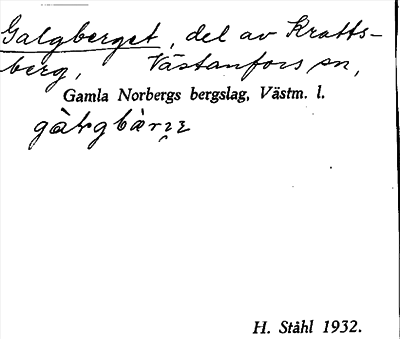 Galgberget, del av Kratts-
berg, Västanfors sn,
Gamla Norbergs bergslag, Västm. l.
H. Ståhl 1932.